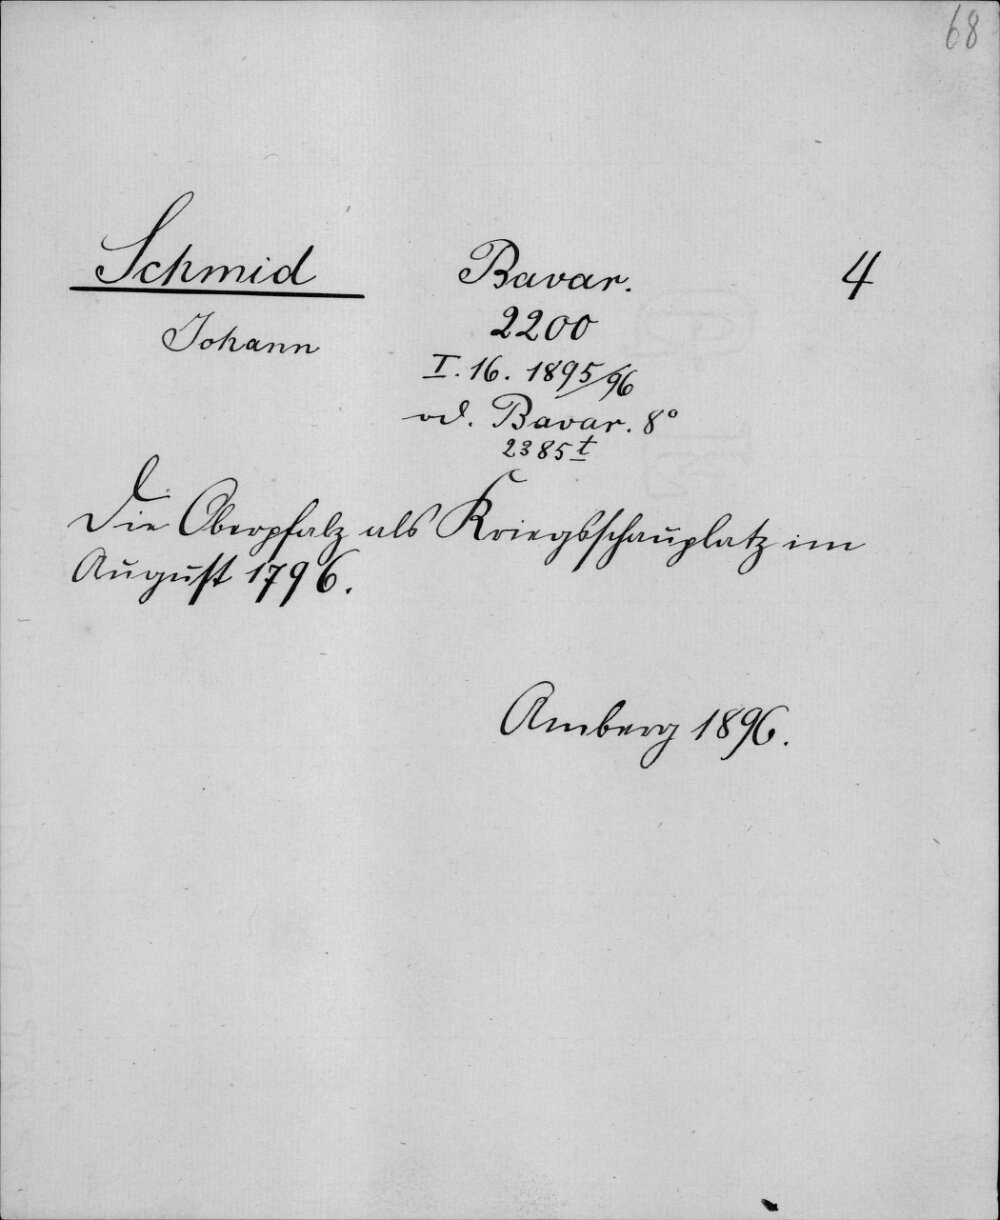 68
Schmid Bavar. 4
Johann 2200
I. 16. 1895/96
od. Bavar. 8°
2385 t
Die Oberpfalz als Kriegsschauplatz im
August 1796.
Amberg 1896.